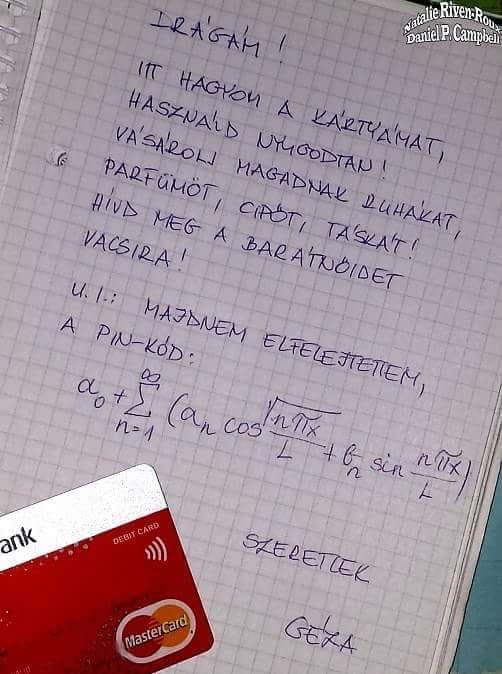 Natalie Riven-Rous
Daniel P. Campbell
DRÁGÁM!
ITT HAGYOM A KÁRTYÁMAT,
HASZNÁLD NYUGODTAN!
VÁSÁROLJ MAGADNAK RUHÁKAT,
PARFÜMÖT, CIPŐT, TÁSKÁT!
HÍVD MEG A BARÁTNŐIDET
VACSIRA!
U.I.: MAJDNEM ELFELEJTETTEM,
A PIN-KÓD:
a₀ + ∑_{n=1}^{∞} (aₙ cos nπx/L + bₙ sin nπx/L)
SZERETLEK
GÉZA
ank
DEBIT CARD
MasterCard